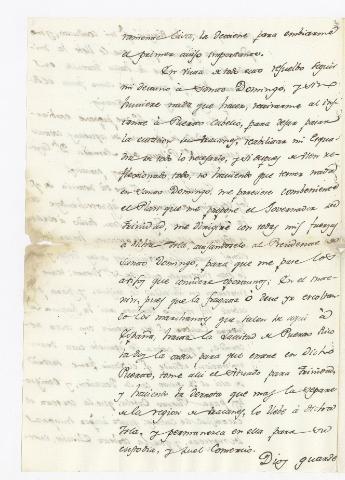 ramente Cairo, la detiene para embiarme
el primer aviso importante.
En vista de todo esto resuelbo seguir
mi destino à Santo Domingo, y si no
huviere nada que hacer, retirarme al ins
tante à Puerto Cabello, para dejar pasar
la estacion de uracanes, rehabilitar mi Esqua
dra de todo lo necesario, y despues de bien re
flexionado todo, no haviendo que temer nada
en Santo Domingo, me pareciere combeniente
el Plan que me propone el Governador de
Trinidad, me dirigiré con todas mis fuerzas
à dicha Isla, avisandoselo al Presidente de
Santo Domingo, para que me pase los
avisos que considere oportunos: En el mo
mento, pues que la fragata
los marchantes que salen de aqui à
España, hasta la de Puerto Rico
la doy la orden para que entre en Dicho
Puerto, tome alli el situado para Trinidad,
y haciendo la derrota que mas la separe
de la region de uracanes, lo lleve à dicha
Isla, y permanezca en ella para su
custodia, y de el Comercio.
Dios guarde